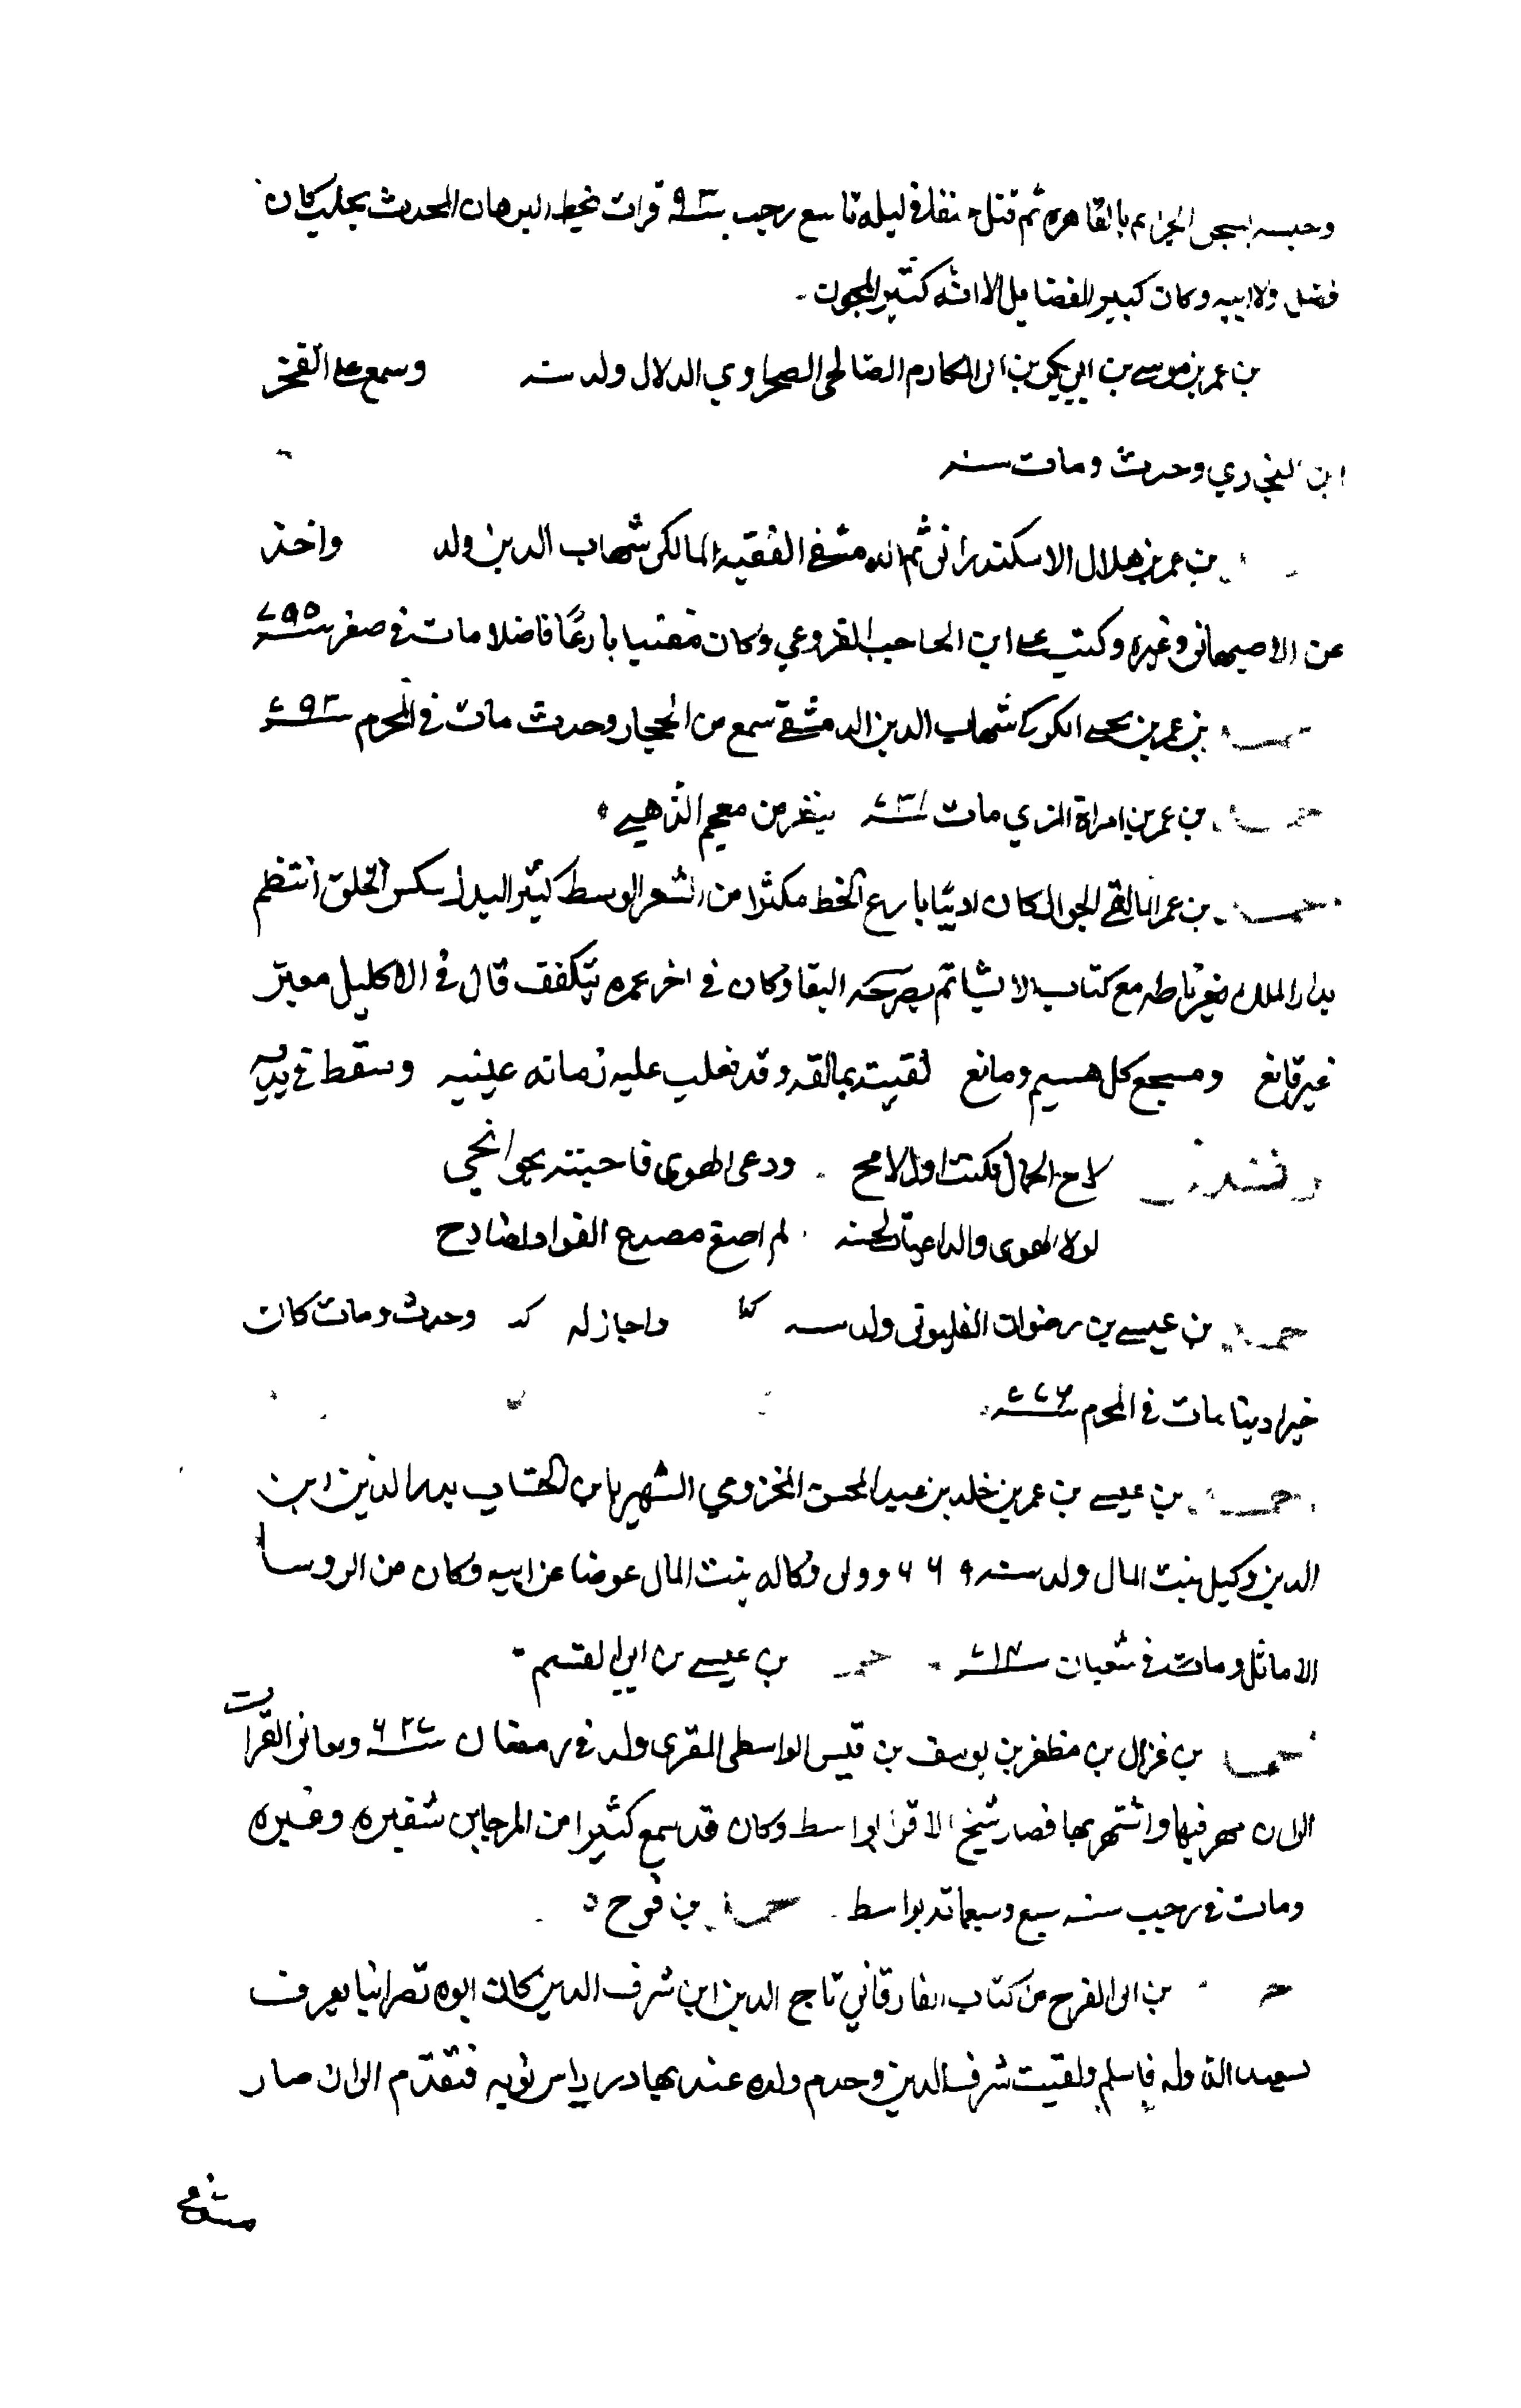 وحبسه بسجن الجرائم بالقاهرة ثم قتل خنقا في ليلة تاسع رجب سنة ٩٣ قرات بخط البرهان المحدث بحلب كان
فضل ولابيه وكان كبير الفضايل الا انه كثير المجون
بن عمر بن موسى بن ابي بكر بن ابي المكارم الصالحي الصحراوي الدلال ولد سنة وسمع على الفخر
ابن البخاري وحدث ومات سنة
بن عمر بن هلال الاسكندراني ثم الدمشقي الفقيه المالكي شهاب الدين ولد واخذ
عن الاصبهاني وغيره وكتب على ابن الحاجب الفروعي وكان مفتيا بارعا فاضلا مات في صفر سنة ٧٩٥
بن عمر بن يحيى الكركي شهاب الدين الدمشقي سمع من الحجار وحدث مات في المحرم سنة ٧٩٣
بن عمر بن امراة المزي مات سنة ٧٣١ ينظر من معجم الذهبي
احمد بن عمر المالقي الجوال كان اديبا بارع الخط مكثرا من الشعر الوسط كثير البدل سكس الخلق انتظم
بدار الملك بغرناطه مع كتاب الانشا ثم البقا وكان في اخر عمره يتكفف قال في الاكليل معتر
غير قانع ومسجع كل هسيم ومانع لقيته بمالقه وقد تغلب عليه زمانه عينيه وسقط في يديه
لاح الجمال فكنت اول لامح ودعى الهوى فاجبته بجوانحي
لولا الهوى والداعيات لحسنه لم اصغ مصدع الفواد لصادح
احمد بن عيسى بن رضوان القليوبي ولد سنة كذا واجاز له كذا وحدث ومات كان
خيرا دينا مات في المحرم سنة
احمد بن عيسى بن عمر بن خلد بن عبد المحسن المخزومي الشهير بابن الخشاب بدر الدين ابن
الدين وكيل بيت المال ولد سنة ٦٦٩ وولي وكاله بيت المال عوضا عن ابيه وكان من الروسا
الاماثل ومات في شعبان سنة احمد بن عيسى بن ابي القسم
احمد بن غزال بن مظفر بن يوسف بن قيس الواسطي المقري ولد في رمضان سنة وتعانى القراات
الى ان مهر فيها واشتهر بها فصار شيخ الاقرا بواسط وكان قد سمع كثيرا من المرجا بن شقيره وغيره
ومات في رجب سنه سبع وسبعمائه بواسط احمد بن فرح
بن ابي الفرح من كتاب الفارقاني تاج الدين ابن شرف الدين كان ابوه نصرانيا يعرف
بسعيد الدوله فاسلم ولقب شرف الدين وخدم ولده عند بهادر راس نوبه فتقدم الى ان صار